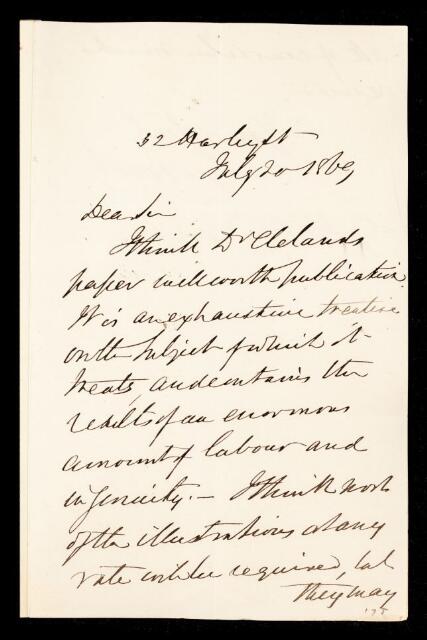 32 Harley St
July 20 1869
Dear Sir
I think Dr Clelands
paper well worth publication.
It is an exhaustive treatise
on the subject of which it
treats, and contains the
results of an enormous
amount of labour and
ingenuity. — I think most
of the illustrations at any
rate will be required, but
they may